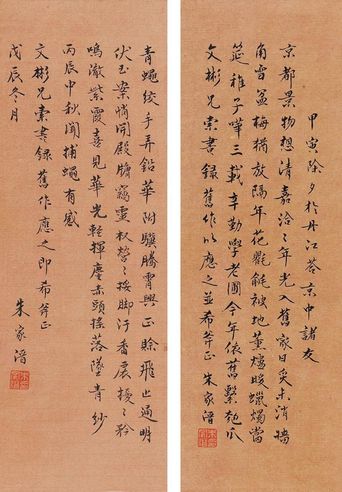 甲寅除夕於丹江答京中諸友
京都景物想清嘉洽〻年光入舊家日炙未消墻
角雪盆梅猶放隔年花氍毹被地薰爐暖蠟燭當
筵稚子嘩三載辛勤學老圃今年依舊繫匏瓜
文彬兄索書錄舊作以應之並希斧正 朱家溍
青蠅絞手弄鉛華附驥騰霄興正賒飛止過明
伏玉案悄聞殿竊靈營〻按脚汙香擾〻矜
鳴澈紫霞喜見華光輕揮麈赤頭搖落墜青紗
丙辰中秋聞捕蠅有感
文彬兄索書錄舊作應之即希斧正
戊辰冬月 朱家溍